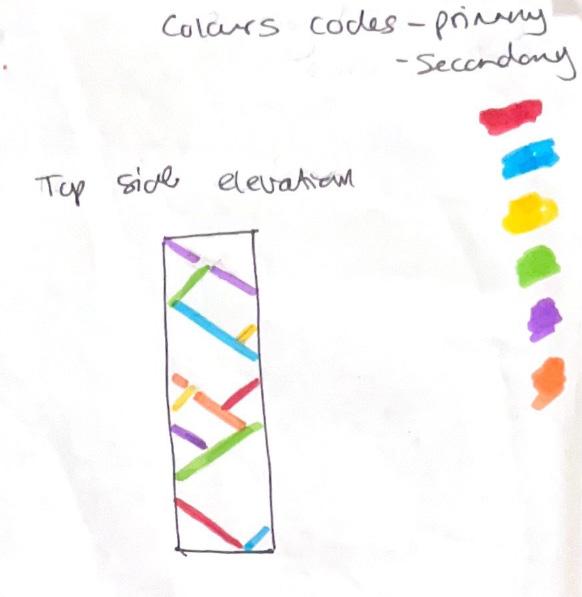 Colours codes - primary
- Secondary
Top side elevation